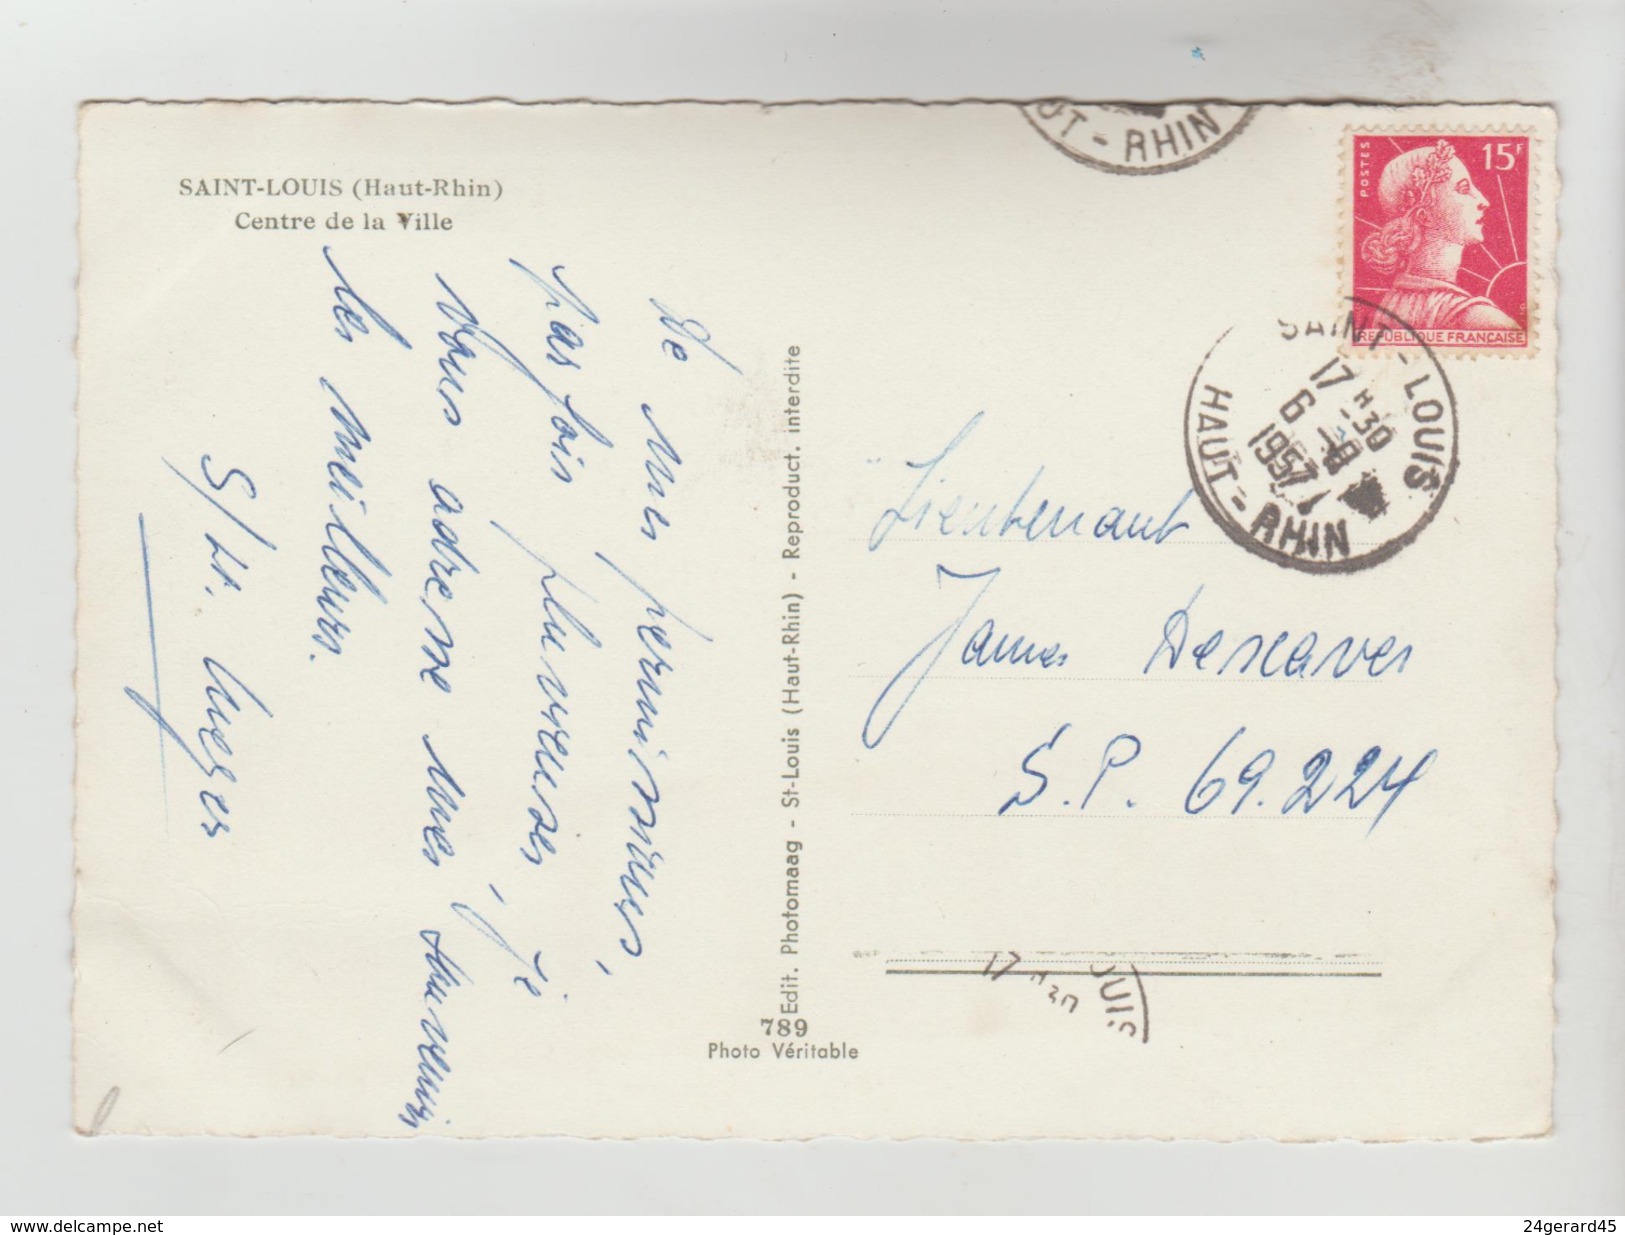 SAINT-LOUIS (Haut-Rhin)
Centre de la Ville
De mes permissions,
parfois pluvieuses, je
vous adresse mes souvenirs
les meilleurs.
S/Lt.
Edit. Photomaag - St-Louis (Haut-Rhin) - Reproduct. interdite
789
Photo Véritable
UT - RHIN
POSTES
15F
REPUBLIQUE FRANÇAISE
SAINT-LOUIS
17 H 30
6 -9
1957
HAUT-RHIN
Lieutenant
James Descaves
S.P. 69.224
17 H 30
OUIS
www.delcampe.net
24gerard45